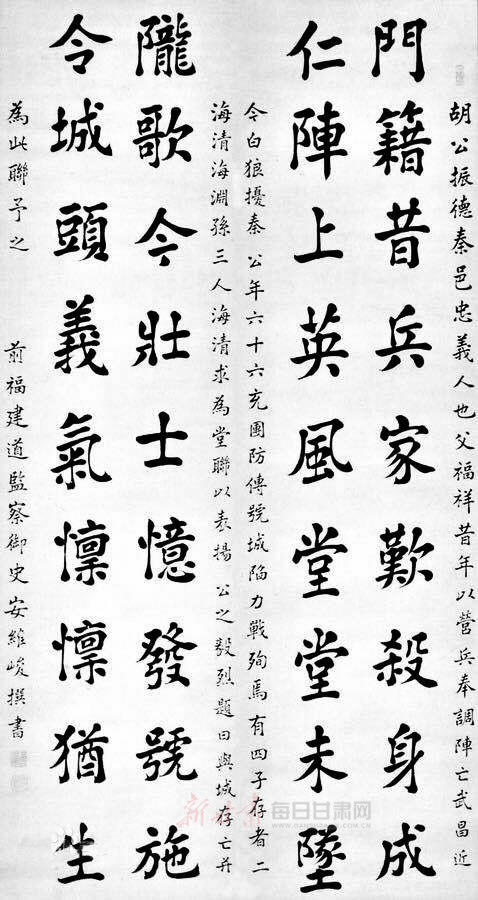 胡公振德秦邑忠義人也父福祥昔年以營兵奉調陣亡武昌近
門籍昔兵家歎殺身成
仁陣上英風堂堂未墜
令白狼擾秦 公年六十六充團防傳號城陷力戰殉焉有四子存者二
海清海淵孫三人海清求為堂聯以表揚 公之毅烈題曰與城存亡并
隴歌今壯士憶發號施
令城頭義氣懍懍猶生
為此聯予之 前福建道監察御史安維峻撰書
每日甘肃网